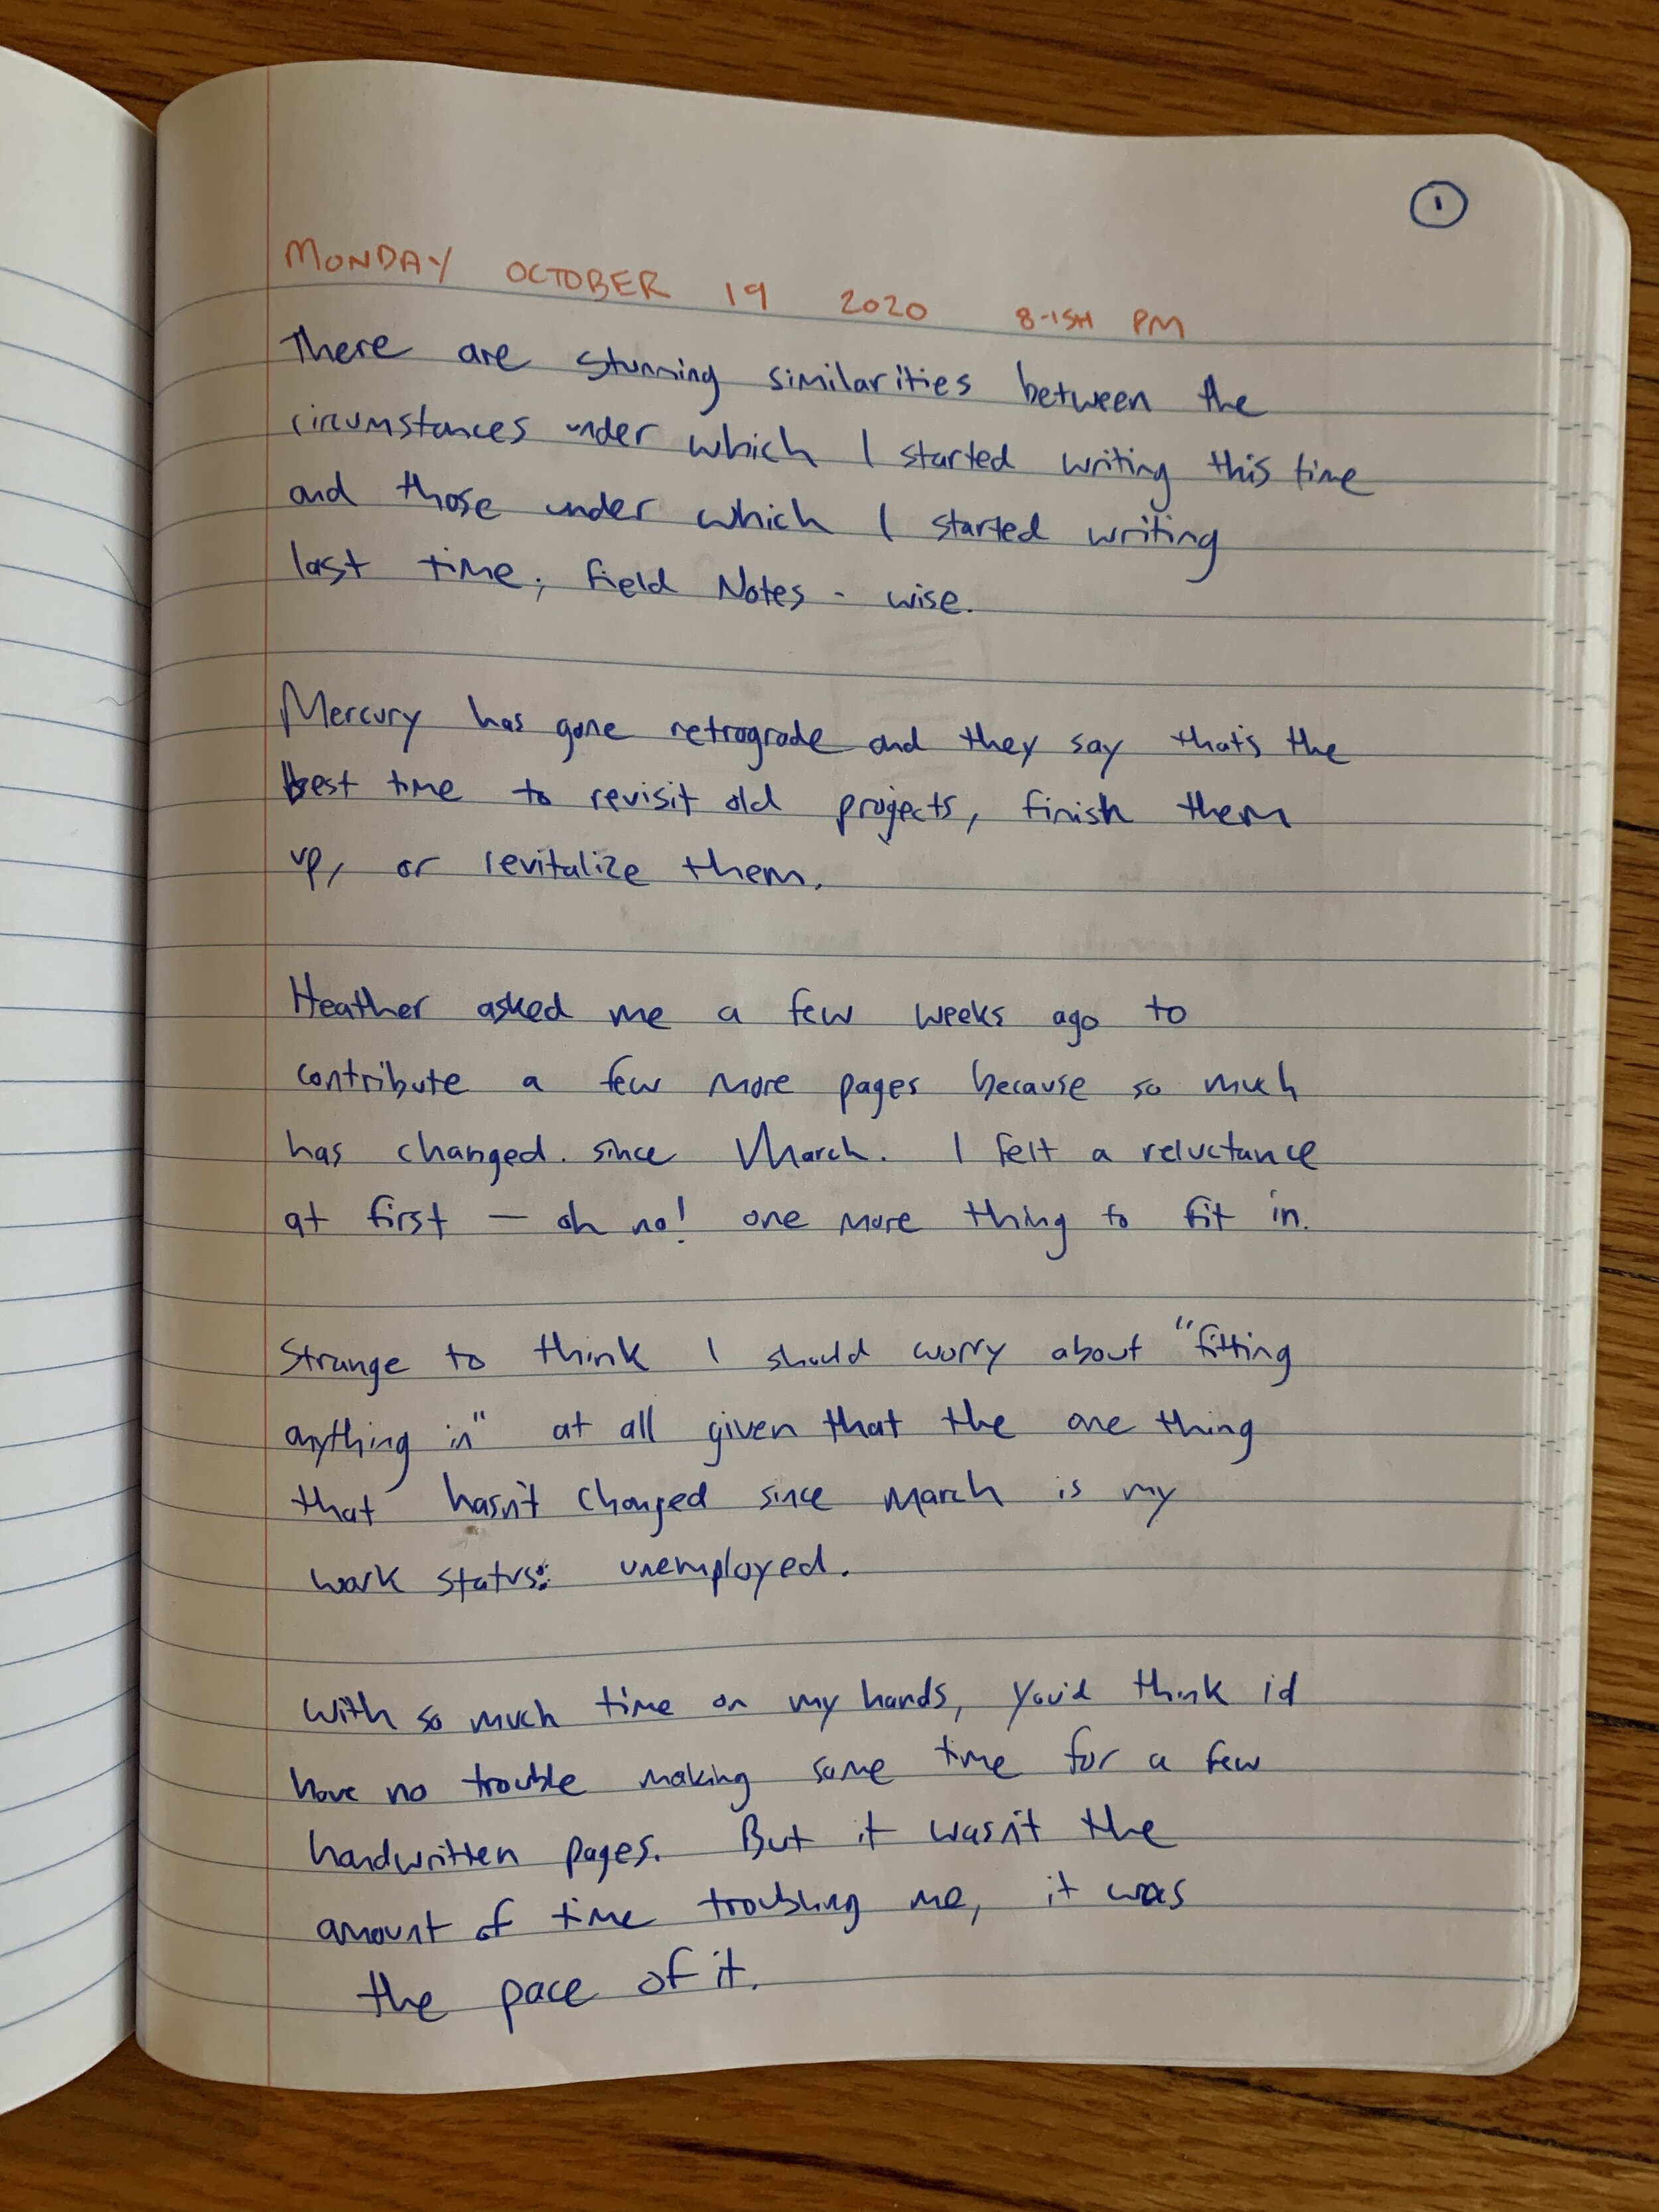 ①
MONDAY OCTOBER 19 2020 8-ISH PM
There are stunning similarities between the
circumstances under which I started writing this time
and those under which I started writing
last time, Field Notes - wise.
Mercury has gone retrograde and they say that's the
best time to revisit old projects, finish them
up, or revitalize them.
Heather asked me a few weeks ago to
contribute a few more pages because so much
has changed since March. I felt a reluctance
at first — oh no! one more thing to fit in.
Strange to think I should worry about "fitting
anything in" at all given that the one thing
that hasn't changed since March is my
work status: unemployed.
With so much time on my hands, you'd think id
have no trouble making some time for a few
handwritten pages. But it wasn't the
amount of time troubling me, it was
the pace of it.